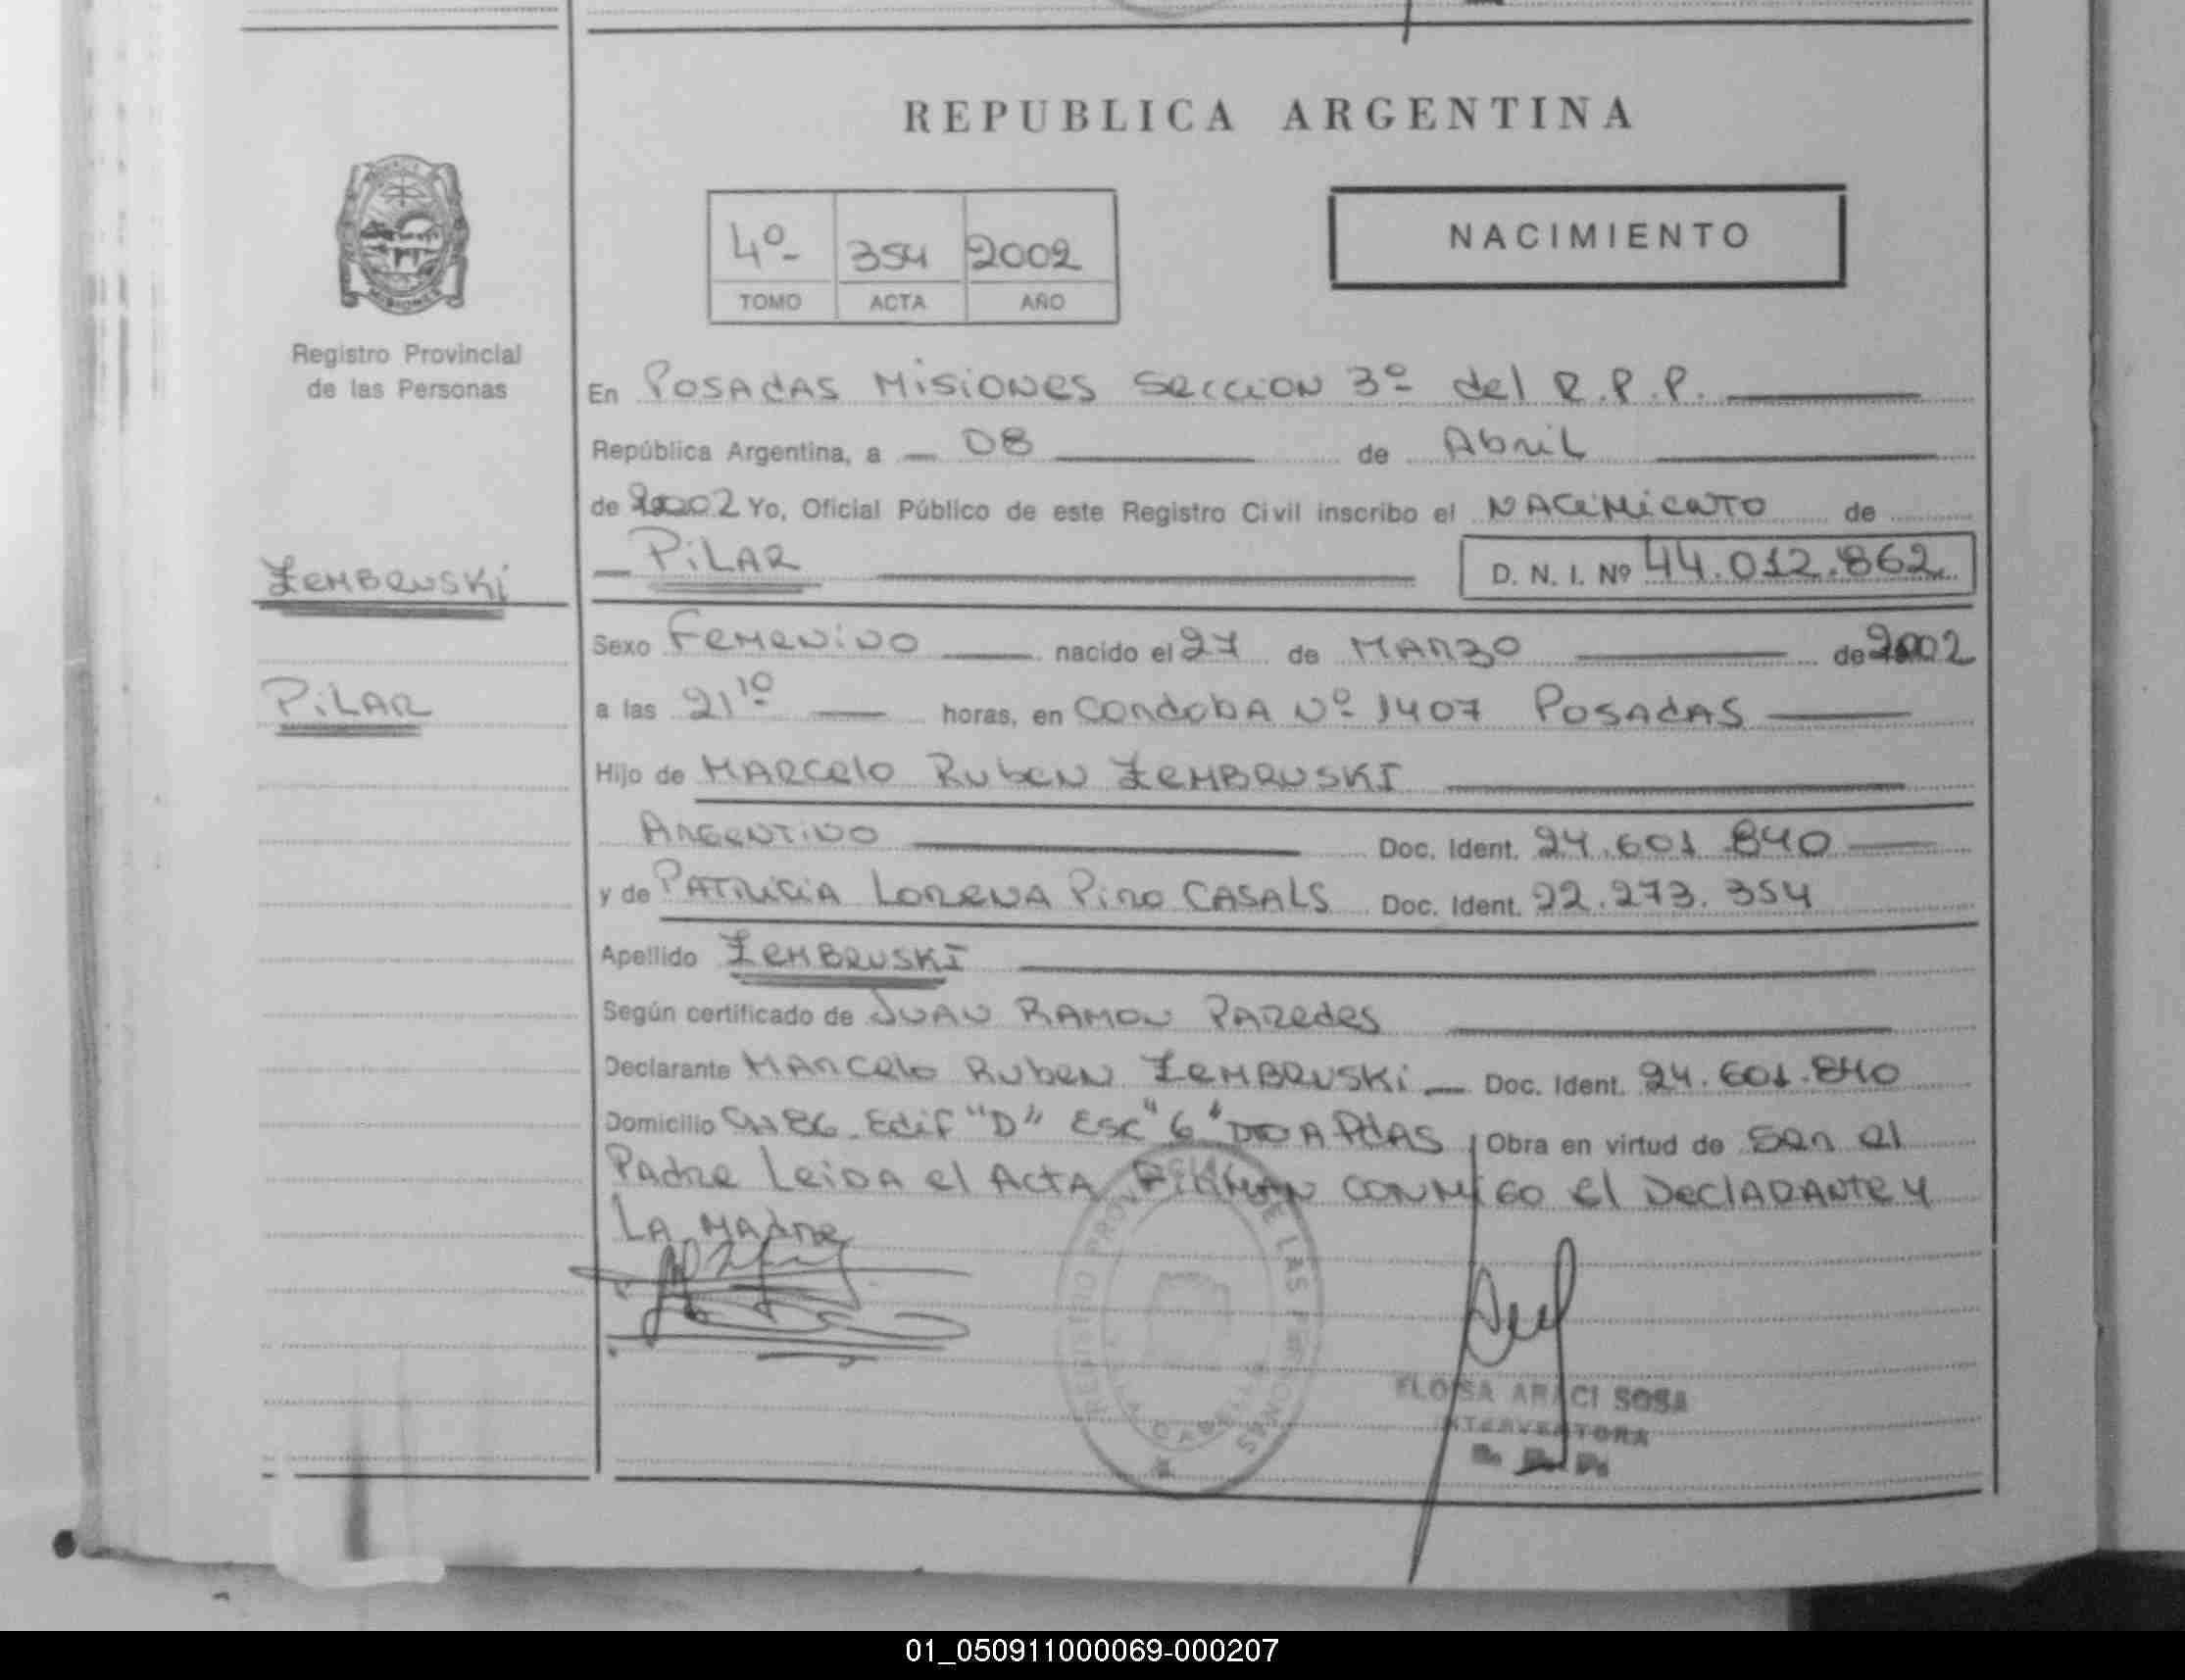 REPUBLICA ARGENTINA
NACIMIENTO
4º 354 2002
TOMO ACTA AÑO
Registro Provincial
de las Personas
En POSAdAS MISIONES SECCION 3º del R.P.P.
República Argentina, a 08 de Abril
de 2002 Yo, Oficial Público de este Registro Civil inscribo el NACIMIENTO de
PILAR D. N. I. Nº 44.012.862
ZEMBRUSKI
PILAR
Sexo FEMENINO nacido el 27 de MARZO de 2002
a las 21 10 horas, en CORdobA Nº 1407 POSAdAS
Hijo de MARCelo RubEN ZEMBRUSKI
ARGENTINO Doc. Ident. 24.601.840
y de PATRICIA LORENA PiRO CASALS Doc. Ident. 22.273.354
Apellido ZEMBRUSKI
Según certificado de JUAN RAMON PAREdes
Declarante MARCelo RubEN ZEMBRUSKI Doc. Ident. 24.601.840
Domicilio Edif "D" Esc "6" Obra en virtud de SER el
PAdRe LeiDA el ActA FIRMAN CONMIGO El DeclARANte y
LA MAdRe
REGISTRO PROVINCIAL DE LAS PERSONAS
ELOISA ARACI SOSA
INTERVENTORA
01_050911000069-000207